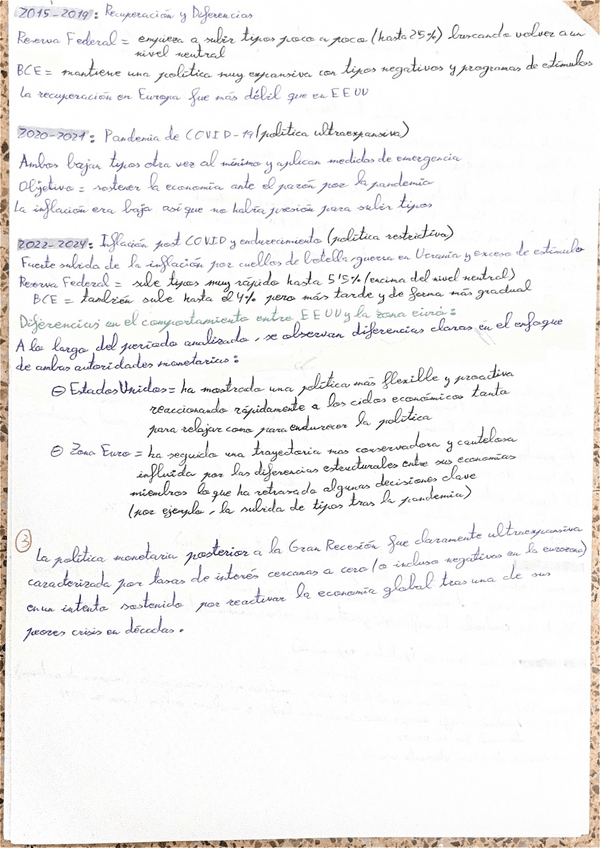 2015-2019: Recuperación y Diferencias
Reserva Federal = empieza a subir tipos poco a poco (hasta 25%) buscando volver a un
nivel neutral
BCE = mantiene una política muy expansiva con tipos negativos y programas de estímulos
La recuperación en Europa fue más débil que en EEUU
2020-2021: Pandemia de COVID-19 (política ultraexpansiva)
Ambos bajan tipos otra vez al mínimo y aplican medidas de emergencia
Objetivo = sostener la economía ante el parón por la pandemia
La inflación era baja así que no había presión para subir tipos
2022-2024: Inflación post COVID y endurecimiento (política restrictiva)
Fuerte subida de la inflación por cuellos de botella, guerra en Ucrania y exceso de estímulo
Reserva Federal = sube tipos muy rápido hasta 5'5% (encima del nivel neutral)
BCE = también sube hasta el 4% pero más tarde y de forma más gradual
Diferencias en el comportamiento entre EEUU y la zona euro:
A lo largo del período analizado, se observan diferencias claras en el enfoque
de ambas autoridades monetarias:
Estados Unidos = ha mostrado una política más flexible y proactiva
reaccionando rápidamente a los ciclos económicos tanto
para relajar como para endurecer la política
Zona Euro = ha seguido una trayectoria mas conservadora y cautelosa
influida por las diferencias estructurales entre sus economías
miembros lo que ha retrasado algunas decisiones clave
(por ejemplo, la subida de tipos tras la pandemia)
3 La política monetaria posterior a la Gran Recesión fue claramente ultraexpansiva
caracterizada por tasas de interés cercanas a cero (o incluso negativas en la eurozona)
en un intento sostenido por reactivar la economía global tras una de sus
peores crisis en décadas.